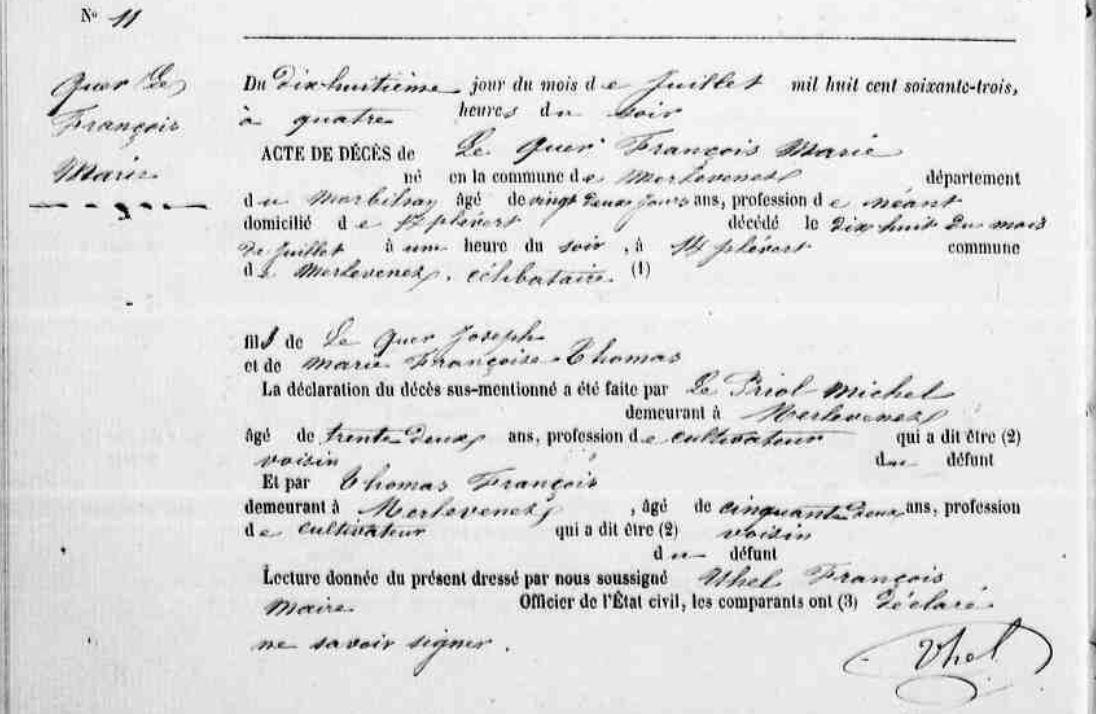 N° 11
Quer Le
François
Marie
Du dix huitième jour du mois de Juillet mil huit cent soixante-trois,
à quatre heures du soir
ACTE DE DÉCÈS de Le Quer François Marie
né en la commune de Merlevenez département
du Morbihan âgé de vingt deux jours ans, profession de néant
domicilié de décédé le dix huit du mois
de Juillet à une heure du soir, à commune
de Merlevenez. célibataire (1)
fils de Le Quer Joseph
et de Marie Françoise Thomas
La déclaration du décès sus-mentionné a été faite par Le Priol Michel
demeurant à Merlevenez
âgé de trente deux ans, profession de cultivateur qui a dit être (2)
voisin du défunt
Et par Thomas François
demeurant à Merlevenez, âgé de cinquante deux ans, profession
de cultivateur qui a dit être (2) voisin
du défunt
Lecture donnée du présent dressé par nous soussigné Uhel François
Maire Officier de l'État civil, les comparants ont (3) déclaré
ne savoir signer.
Uhel